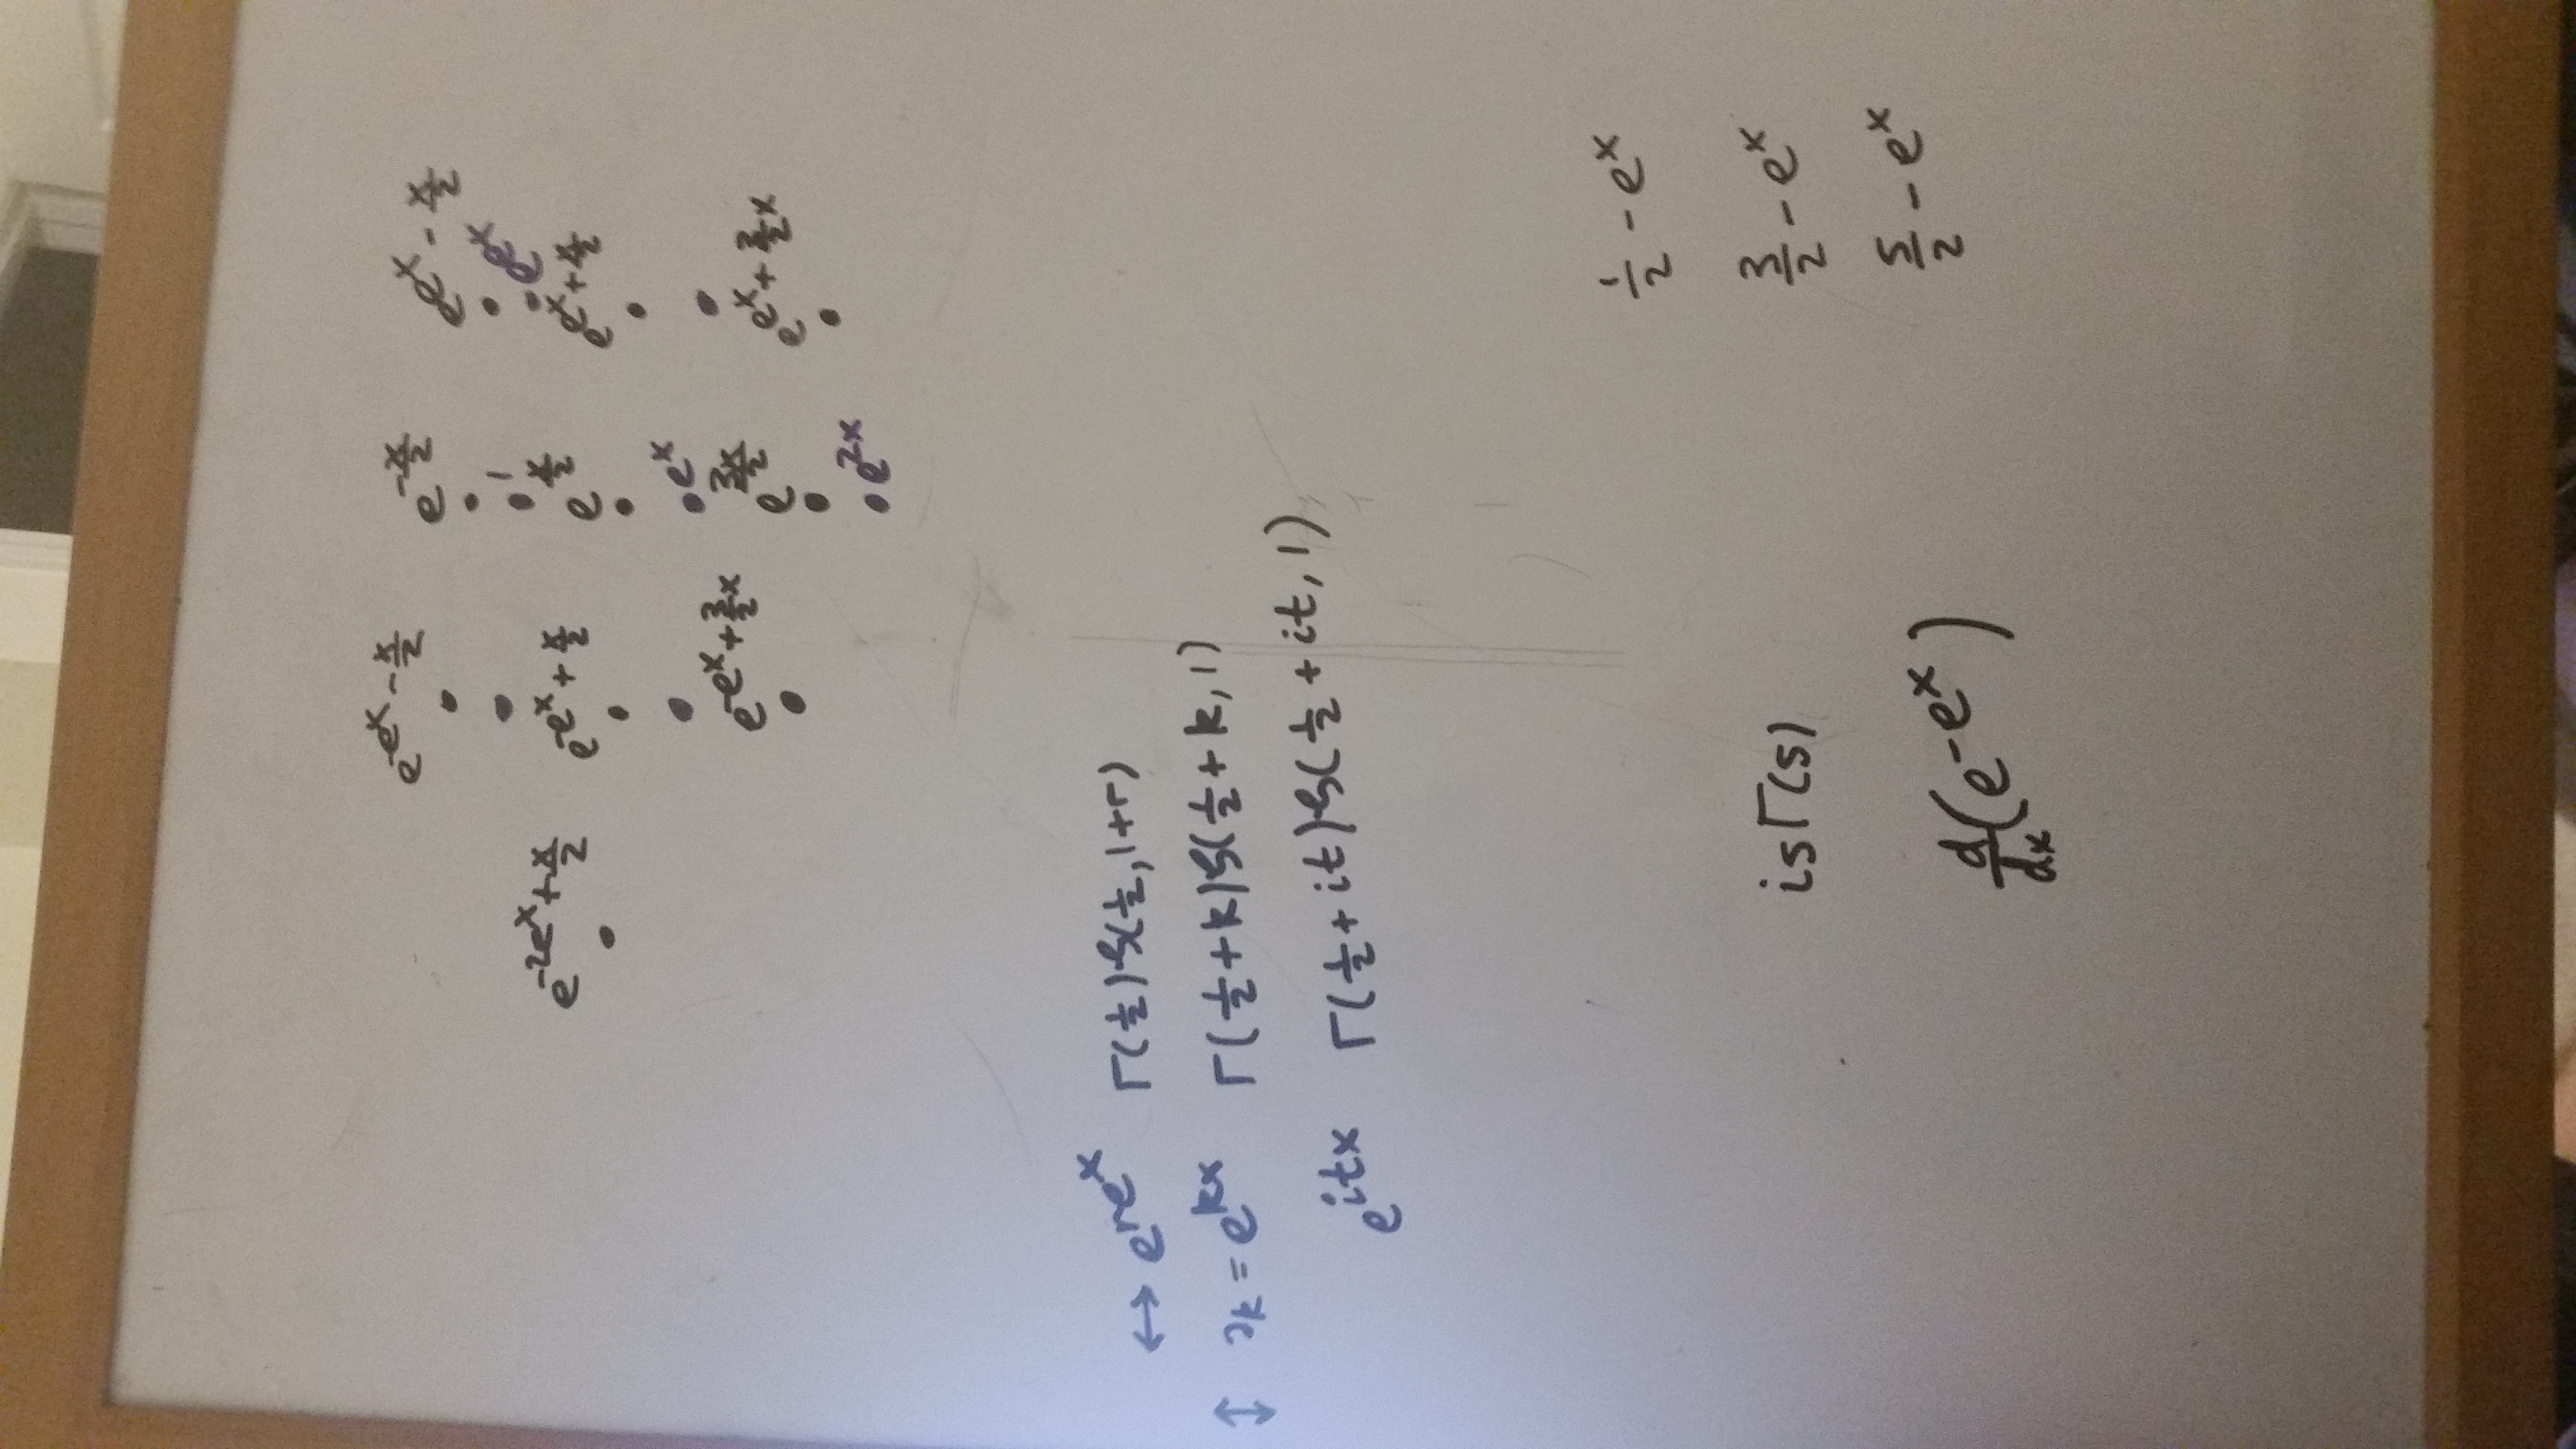 e^{-e^x - x/2} e^{-x/2} e^{e^x - x/2}
1 e^{e^x}
e^{-2e^x + x/2} e^{-e^x + x/2} e^{x/2} e^{e^x + x/2}
e^x
e^{-e^x + 3/2 x} e^{3x/2} e^{e^x + 3/2 x}
e^{2x}
↔ e^{re^x} Γ(1/2)ζ(1/2, 1+r)
↕ ∂k = e^{kx} Γ(1/2 + k)ζ(1/2 + k, 1)
e^{itx} Γ(1/2 + it)ζ(1/2 + it, 1)
1/2 - e^x
isΓ(s) 3/2 - e^x
d/dx(e^{-e^x}) 5/2 - e^x